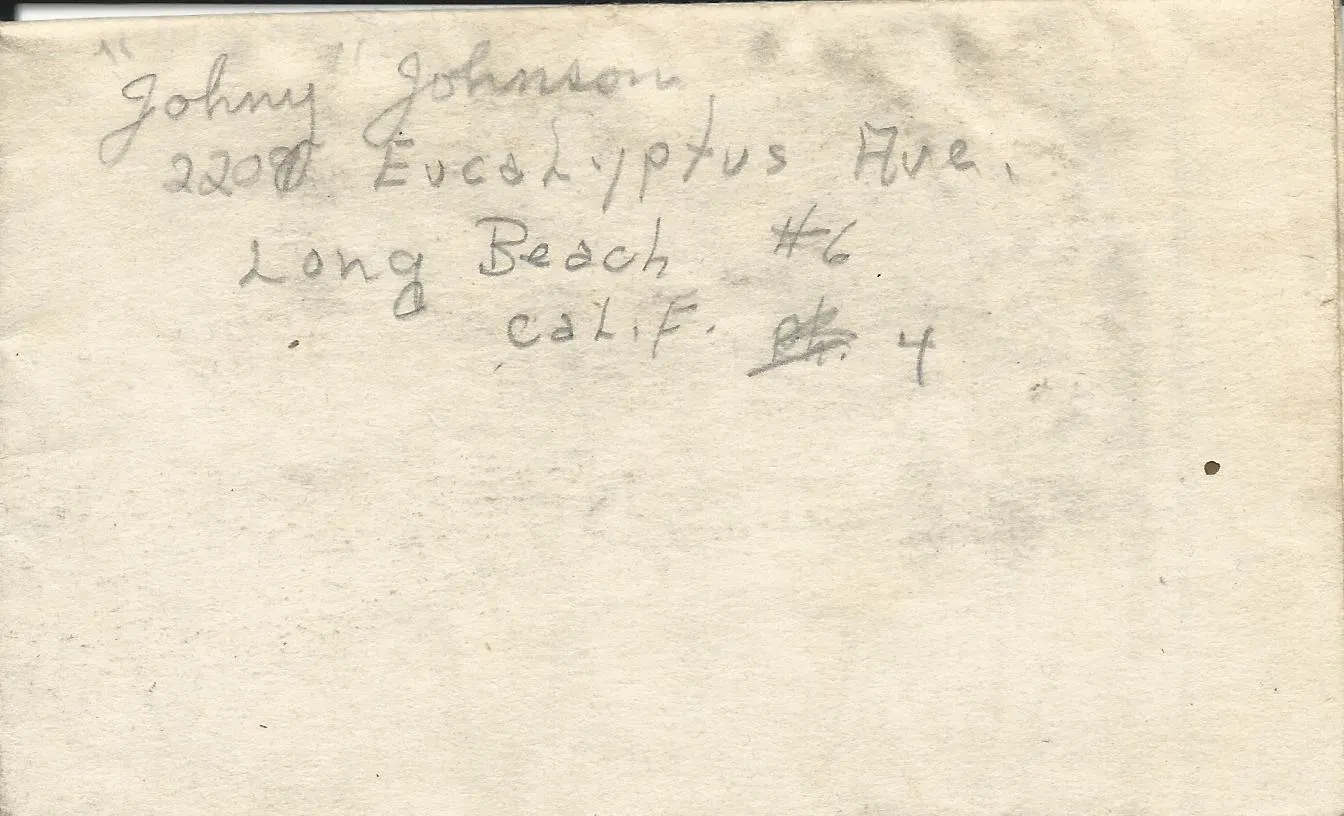 "Johny" Johnson
Eucalyptus Ave.
Long Beach #6
CaLiF. ph. 4